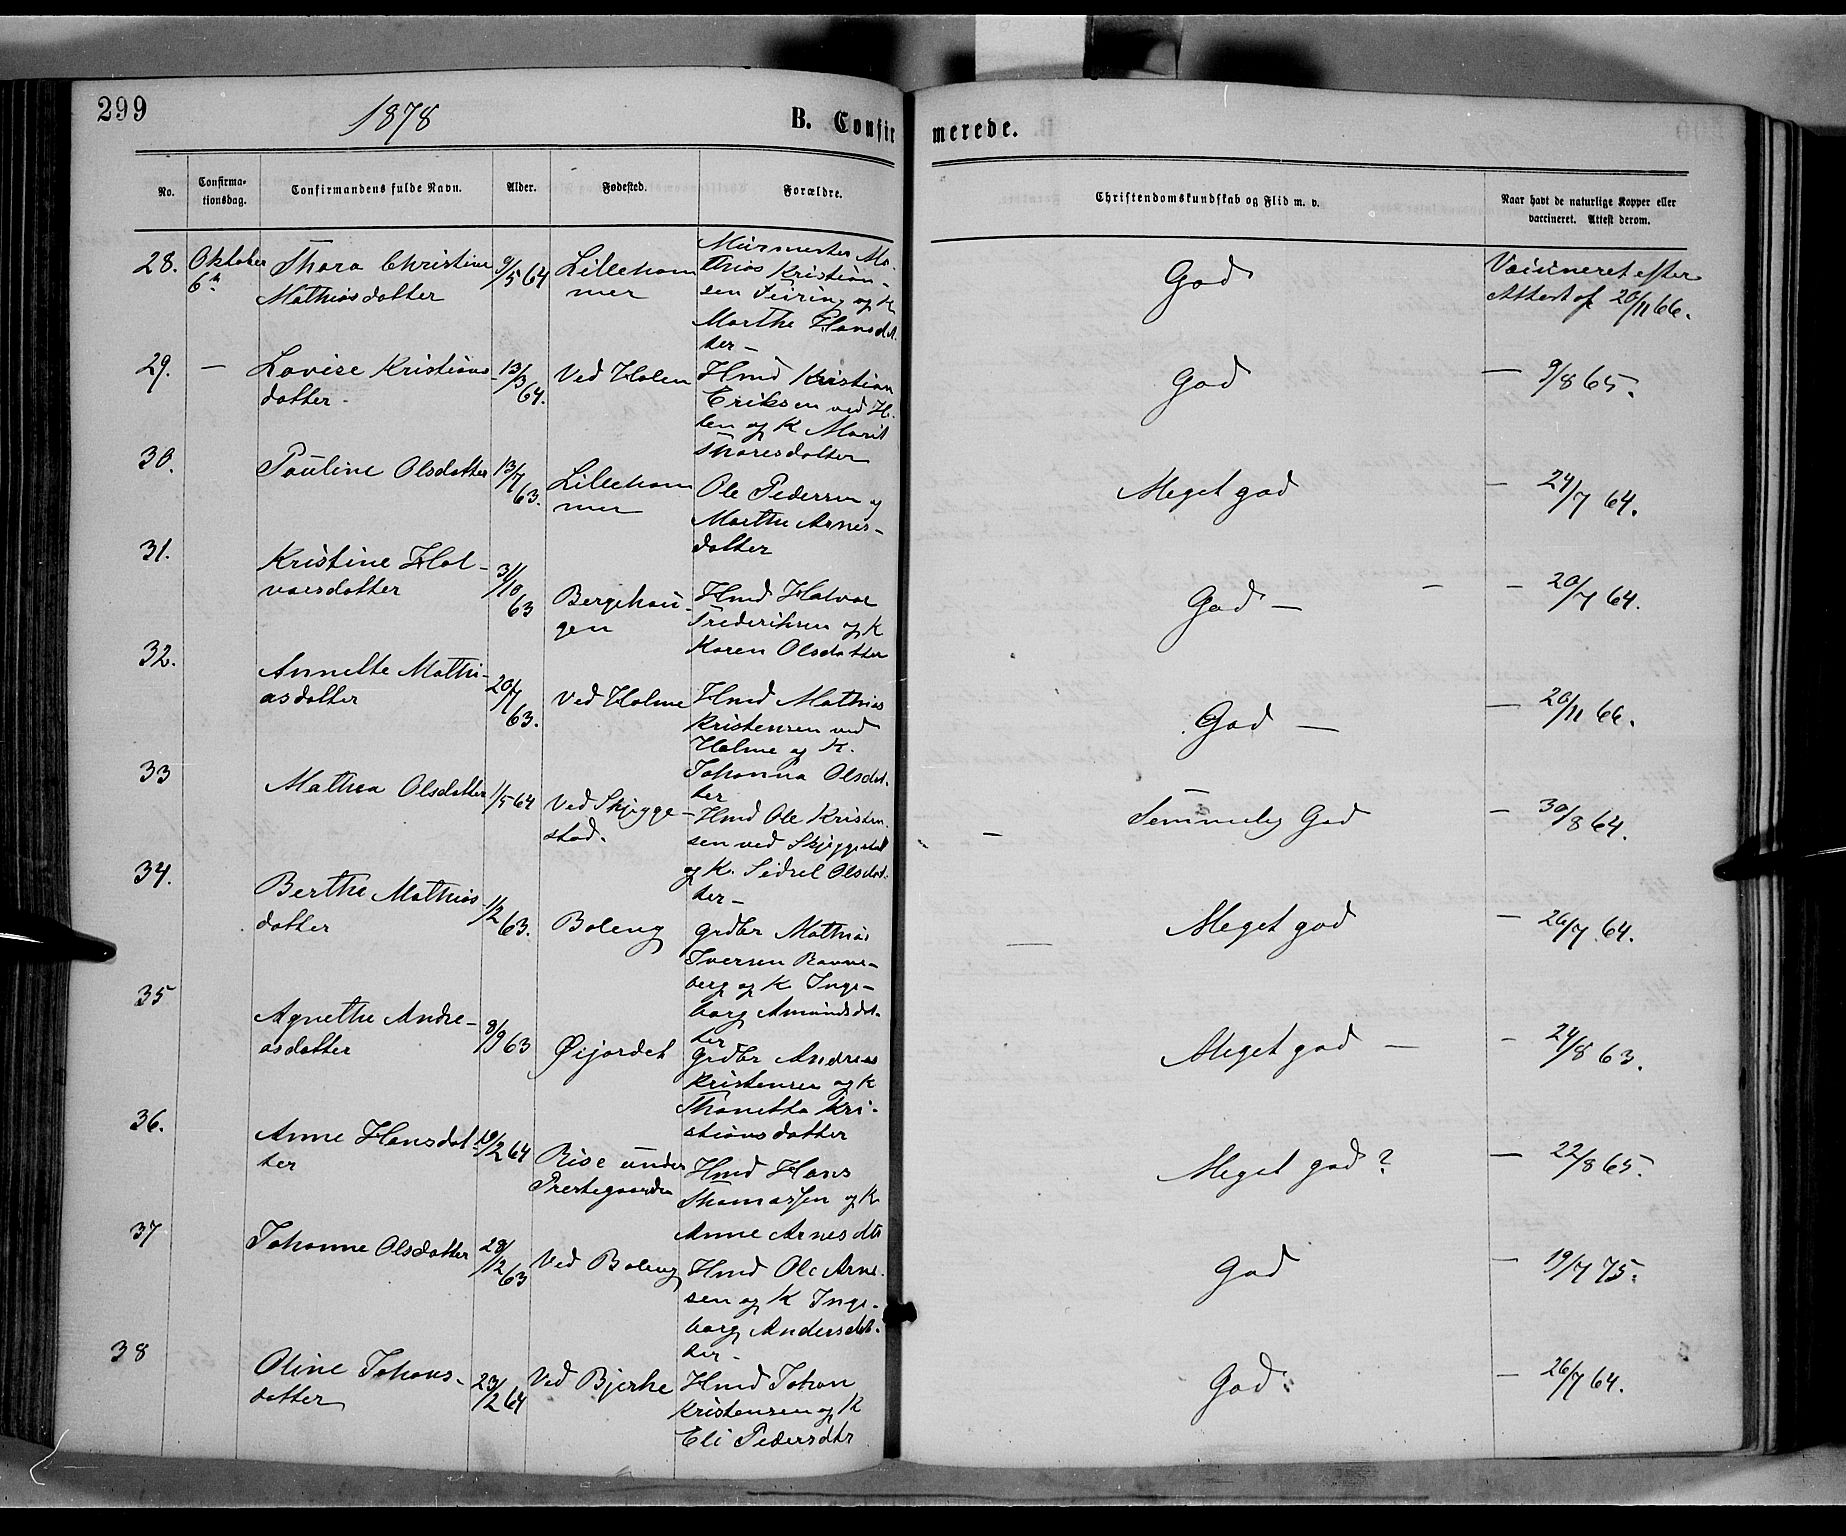 299
1878
B. Confirmerede.
No.
Confirma-
tionsdag.
Confirmandens fulde Navn.
Alder.
Fødested.
Forældre.
Christendomskundskab og Flid m. v.
Naar havt de naturlige Kopper eller
vaccineret. Attest derom.
28. Oktober 6te
Thora Christine
Mathiasdatter
9/5 64
Lilleham
mer
Murmester Ma-
thias Kristian-
sen Feiring og K
Marthe Hansdat
ter –
God
Vaccineret efter
Attest af 20/11 66.
29. –
Lovise Kristians
datter.
13/3 64.
Ved Holen
Hmd Kristian
Eriksen ved Ho-
len og K Marit
Thoresdatter
God
– 9/8 65.
30.
Pauline Olsdatter
13/7 63.
Lilleham
mer
Ole Pedersen og
Marthe Arnes-
datter
Meget god
– 24/7 64.
31.
Kristine Hal-
vorsdatter
31/10 63
Bergehau-
gen
Hmd Halvor
Frederiksen og K
Karen Olsdatter
God –
– – 20/7 64.
32.
Annette Mathi-
asdatter
20/7 63.
Ved Holme
Hmd Mathias
Kristensen ved
Holme og K.
Johanna Olsdat
ter
God –
– 20/11 66.
33
Mathea Olsdatter
1/5 64
Ved Skjegge-
stad.
Hmd Ole Kristen
sen ved Skjeggestad
og K. Sidsel Olsdat
ter –
– Temmelig God
– 30/8 64.
34.
Berthe Mathias
datter
1/2 63.
Boleng
Grdbr Mathias
Iversen Ravne-
berg og K Inge-
borg Amundsdat-
ter
– Meget god
– 26/7 64.
35
Agnethe Andre-
asdatter
8/9 63
Øijordet
Grdbr Andreas
Kristensen og K
Thonetta Kri-
stiansdatter
Meget god –
– 24/8 63.
36.
Anne Hansdat
ter
19/2 64
Rise under
Prestegaarden
Hmd Hans
Thomassen og K
Anne Arnesdtr
Meget god?
– 22/8 65.
37
Johanne Olsdatter
28/12 63
Ved Boleng
Hmd Ole Arne-
sen og K Inge-
borg Andersdat-
ter –
God
– 19/7 75.
38
Oline Johans-
datter
23/2 64
Ved Bjerke
Hmd Johan
Kristensen og K
Eli Pedersdtr
God.
– 26/7 64.